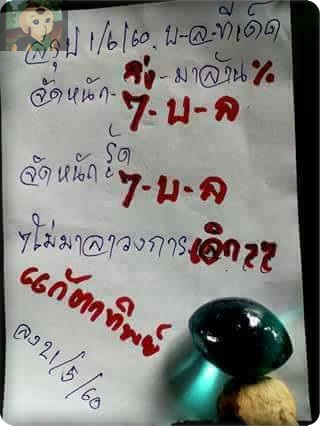 สรุป 1/6/60. บ-ล-ทีเด็ด
จัดหนัก- ส่ง -มาล้าน%
7-บ-ล
จัดหนัก รูด
7-บ-ล
7ไม่มาลาวงการเลิก77
แก้ตาทิพย์
ลง21/5/60